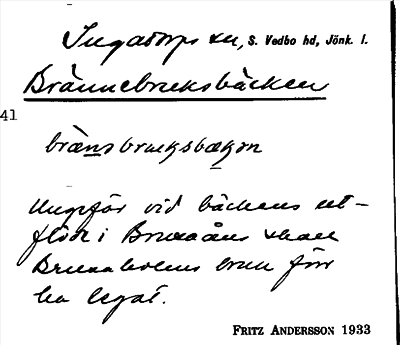 Ingatorps sn, S. Vedbo hd, Jönk. l.
Brännebruksbäcken
41
brän̲s bruksbäk̲ən
Ungefär vid bäckens ut-
flöde i Brusaåns skall
Brunnbolens bruk förr
ha legat.
FRITZ ANDERSSON 1933